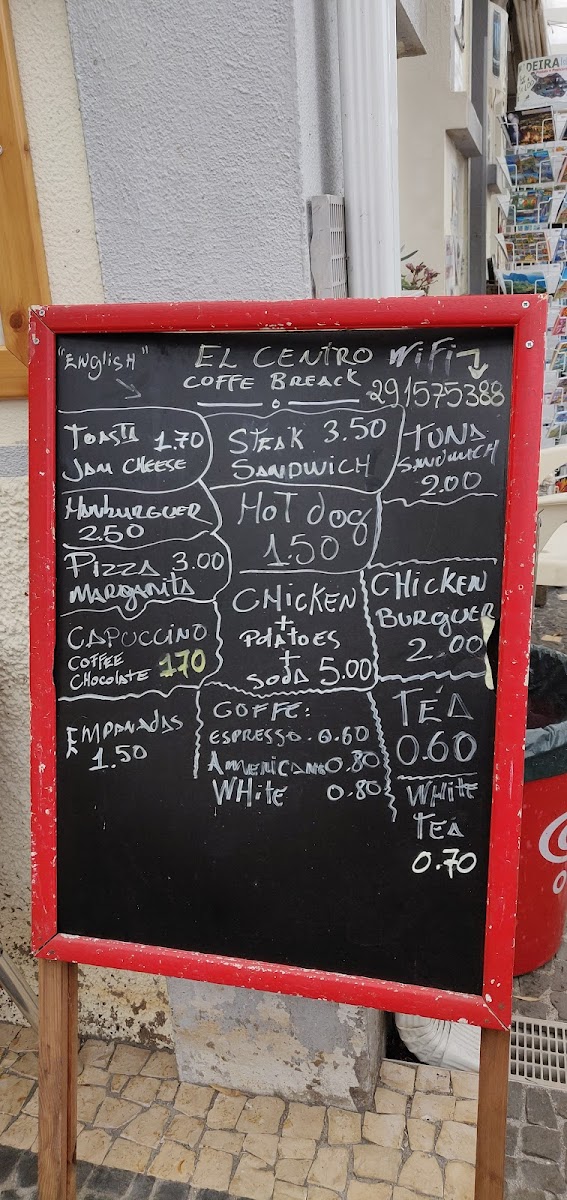 "ENglisH"
EL CENTRO
COFFE BREACK
WiFi
291575388
TOASTA 1.70
JAM CHEESE
HAMBURGUER
2.50
PIZZA 3.00
MARGARITA
CAPUCCINO
COFFEE
CHOCOLATE 170
EMPANADAS
1.50
STEAK 3.50
SANDWICH
HOT dog
1.50
CHICKEN
+
POTATOES
+
SODA 5.00
COFFE:
ESPRESSO. 0.60
AMERICANO 0,80
WHitE 0.80
TUNA
SANDWICH
2.00
CHICKEN
BURGUER
2.00
TEA
0.60
WHITE
TEA
0.70
DEIRA